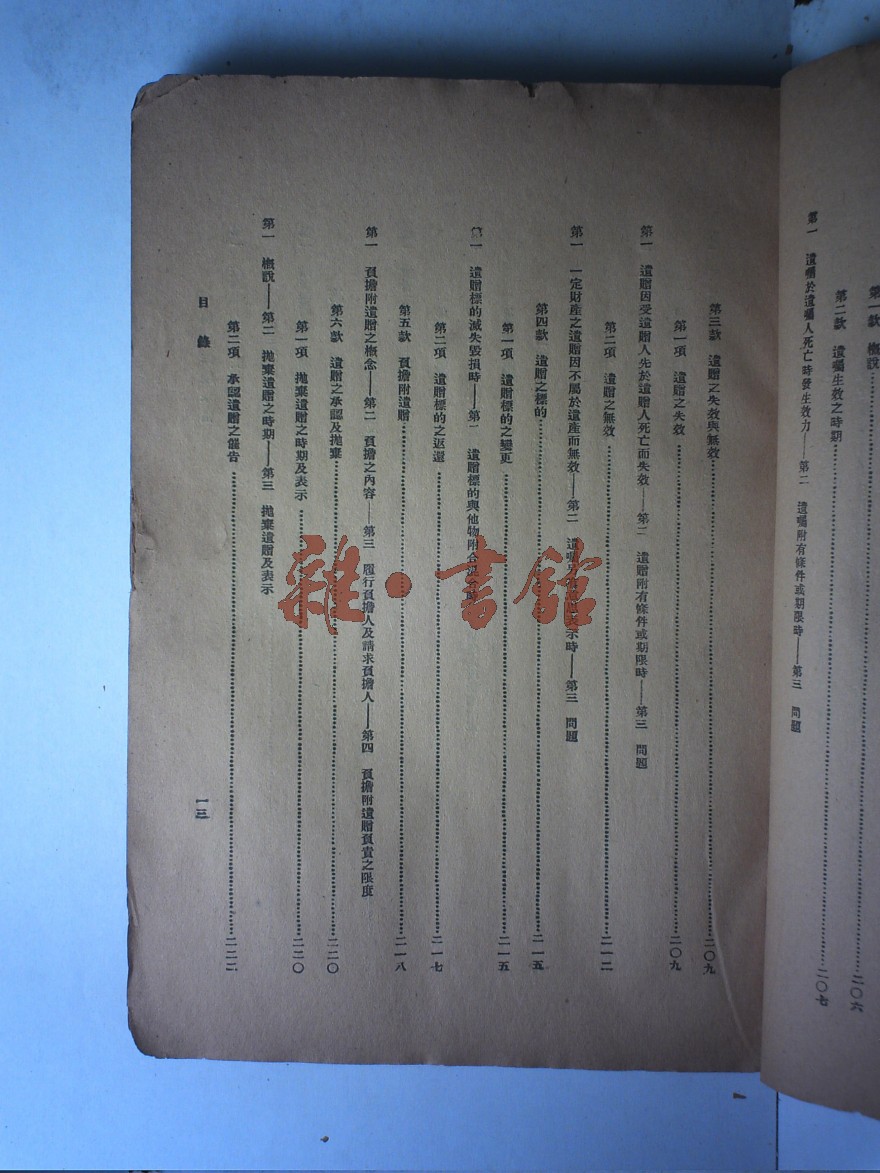 第一款　概說………二〇六
第二款　遺囑生效之時期………二〇七
第一　遺囑於遺囑人死亡時發生效力——第二　遺囑附有條件或期限時——第三　問題
第三款　遺贈之失效與無效………二〇九
第一項　遺贈之失效………二〇九
第一　遺贈因受遺贈人先於遺贈人死亡而失效——第二　遺贈附有條件或期限時——第三　問題
第二項　遺贈之無效………二一二
第一　一定財產之遺贈因不屬於遺產而無效——第二　遺囑 表示時——第三　問題
第四款　遺贈之標的………二一五
第一項　遺贈標的之變更………二一五
第一　遺贈標的滅失毀損時——第二　遺贈標的與他物附合
第二項　遺贈標的之返還………二一七
第五款　負擔附遺贈………二一八
第一　負擔附遺贈之概念——第二　負擔之內容——第三　履行負擔人及請求負擔人——第四　負擔附遺贈負責之限度
第六款　遺贈之承認及拋棄………二二〇
第一項　拋棄遺贈之時期及表示………二二〇
第一　概說——第二　拋棄遺贈之時期——第三　拋棄遺贈及表示
第二項　承認遺贈之催告………二二二
目錄
一三
雜·書館